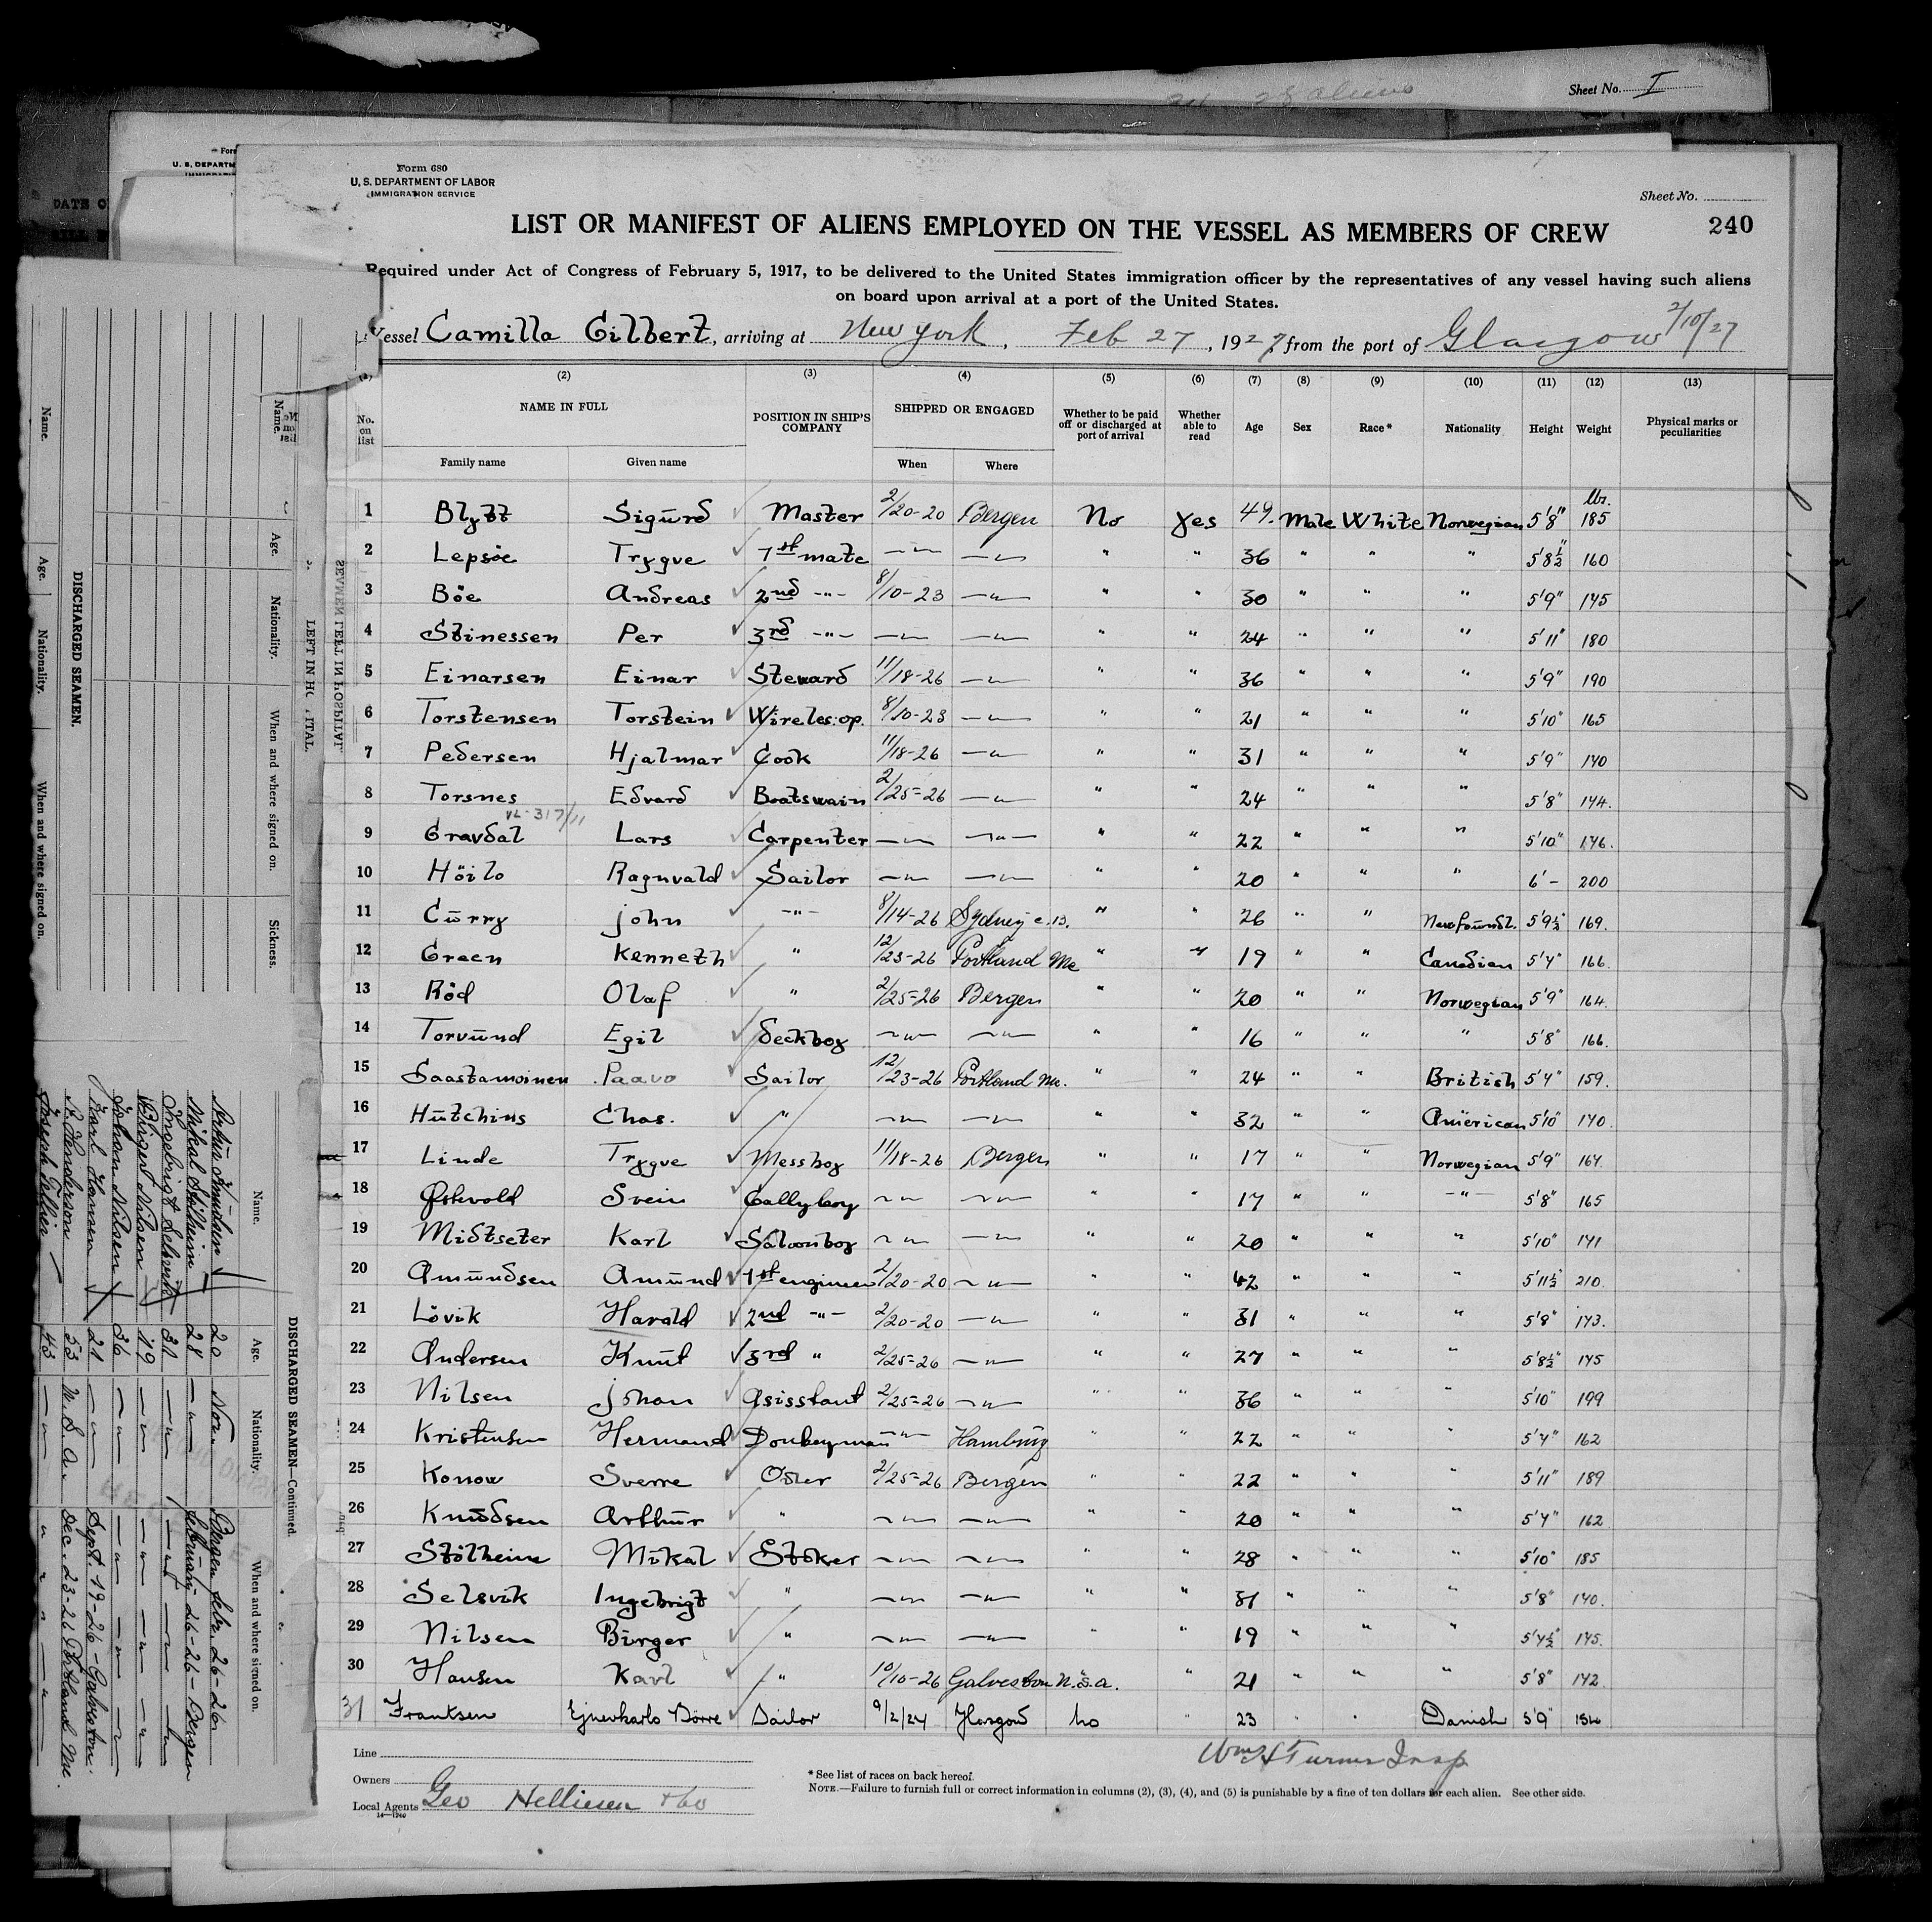 Sheet No. I
28 aliens
Form 680
U. S. DEPARTMENT OF LABOR
IMMIGRATION SERVICE
Sheet No.
LIST OR MANIFEST OF ALIENS EMPLOYED ON THE VESSEL AS MEMBERS OF CREW
240
Required under Act of Congress of February 5, 1917, to be delivered to the United States immigration officer by the representatives of any vessel having such aliens
on board upon arrival at a port of the United States.
Vessel Camilla Gilbert, arriving at New York, Feb 27, 1927, from the port of Glasgow 2/10/27
(1) (2) (3) (4) (5) (6) (7) (8) (9) (10) (11) (12) (13)
No. on list NAME IN FULL POSITION IN SHIP'S COMPANY SHIPPED OR ENGAGED Whether to be paid off or discharged at port of arrival Whether able to read Age Sex Race* Nationality Height Weight Physical marks or peculiarities
Family name Given name When Where
lbs.
1 Blytt Sigurd Master 2/20-20 Bergen No Yes 49. Male White Norwegian 5'8" 185
2 Lepsöe Trygve 1st mate —"— —"— " " 36 " " " 5'8½" 160
3 Böe Andreas 2nd -"- 8/10-23 —"— " " 30 " " " 5'9" 175
4 Stinessen Per 3rd -"- —"— —"— " " 24 " " " 5'11" 180
5 Einarsen Einar Steward 11/18-26 —"— " " 36 " " " 5'9" 190
6 Torstensen Torstein Wireles:op. 8/10-23 —"— " " 21 " " " 5'10" 165
7 Pedersen Hjalmar Cook 11/18-26 —"— " " 31 " " " 5'9" 170
8 Torsnes Edvard Boatswain 2/25-26 —"— " " 24 " " " 5'8" 174.
VL-317/11
9 Gravdal Lars Carpenter —"— —"— " " 22 " " " 5'10" 176.
10 Höilo Ragnvald Sailor —"— —"— " " 20 " " " 6'- 200
11 Curry John -"- 8/14-26 Sydney C.B. " " 26 " " Newfoundl. 5'9½" 169.
12 Green Kenneth " 12/23-26 Portland Me " " 19 " " Canadian 5'7" 166.
13 Röd Olaf " 2/25-26 Bergen " " 20 " " Norwegian 5'9" 164.
14 Torvund Egil Deckboy —"— —"— " " 16 " " " 5'8" 166.
15 Saastamoinen Paavo Sailor 12/23-26 Portland Me. " " 24 " " British 5'7" 159.
16 Hutchins Chas. " —"— —"— " " 32 " " American 5'10" 170.
17 Linde Trygve Messboy 11/18-26 Bergen " " 17 " " Norwegian 5'9" 167.
18 Øskvold Svein Gallyboy —"— —"— " " 17 " " -"- 5'8" 165
19 Midtseter Karl Saloonboy —"— —"— " " 20 " " " 5'10" 171
20 Amundsen Amund 1st engineer 2/20-20 —"— " " 42 " " " 5'11½" 210.
21 Lövik Harald 2nd -"- 2/20-20 —"— " " 31 " " " 5'8" 173.
22 Andersen Knut 3rd " 2/25-26 —"— " " 27 " " " 5'8½" 175
23 Nilsen Johan Asisstant 2/25-26 —"— " " 36 " " " 5'10" 199
24 Kristensen Hermand Donkeyman —"— Hamburg " " 22 " " " 5'7" 162
25 Konow Sverre Oiler 2/25-26 Bergen " " 22 " " " 5'11" 189
26 Knudsen Arthur " —"— —"— " " 20 " " " 5'7" 162
27 Stölheim Mikal Stoker —"— —"— " " 28 " " " 5'10" 185
28 Selsvik Ingebrigt " —"— —"— " " 31 " " " 5'8" 170.
29 Nilsen Birger " —"— —"— " " 19 " " " 5'7½" 175.
30 Hansen Karl " 10/10-26 Galveston U.S.A. " 21 " " " 5'8" 172
31 Frantsen Ejnerkarlo Börre Sailor 9/2/24 Glasgow No " 23 " " Danish 5'9" 154
Line
Owners
Local Agents Geo Helliesen & Co
14—1240
Wm H Turner Insp
* See list of races on back hereof.
NOTE.—Failure to furnish full or correct information in columns (2), (3), (4), and (5) is punishable by a fine of ten dollars for each alien. See other side.
DISCHARGED SEAMEN.
Name. Age. Nationality. When and where signed on.
Name. Age. Nationality. When and where signed on. Sickness.
SEAMEN LEFT IN HOSPITAL.
DISCHARGED SEAMEN—Continued.
Name. Age. Nationality. When and where signed on.
Artur Knudsen 20 Nor. Bergen febr. 26-26
Mikal Stölheim 28 —"— februarij 26-26 - Bergen
Ingebrigt Selsvik 31 —"— —"— —"—
Birgert Nilsen 19 —"— —"— —"—
Johan Nilsen 36 —"— —"— —"—
Karl Hansen 21 —"— Sept. 19-26 - Galveston.
S. Henderson 53 U.S.A. Dec. 23-26 Portland Me.
Joseph Tellier 43 —"— " " "